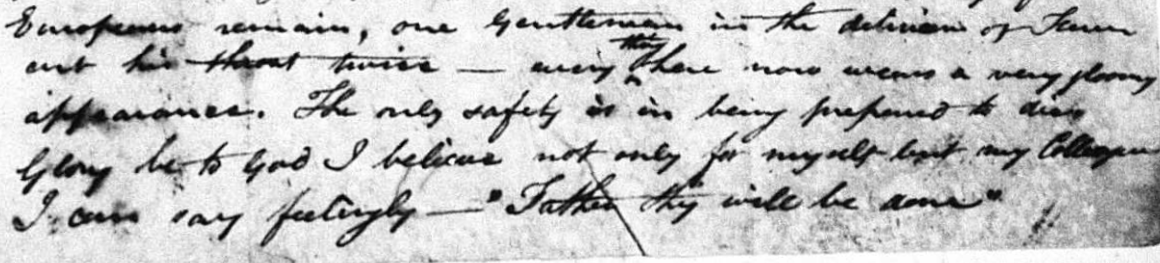 Europeans remain, one Gentleman in the delirium of Fever
cut his throat twice — every thing here now wears a very gloomy
appearance. The only safety is in being prepared to die,
Glory be to God I believe not only for myself but my Colleague
I can say feelingly — "Father thy will be done"